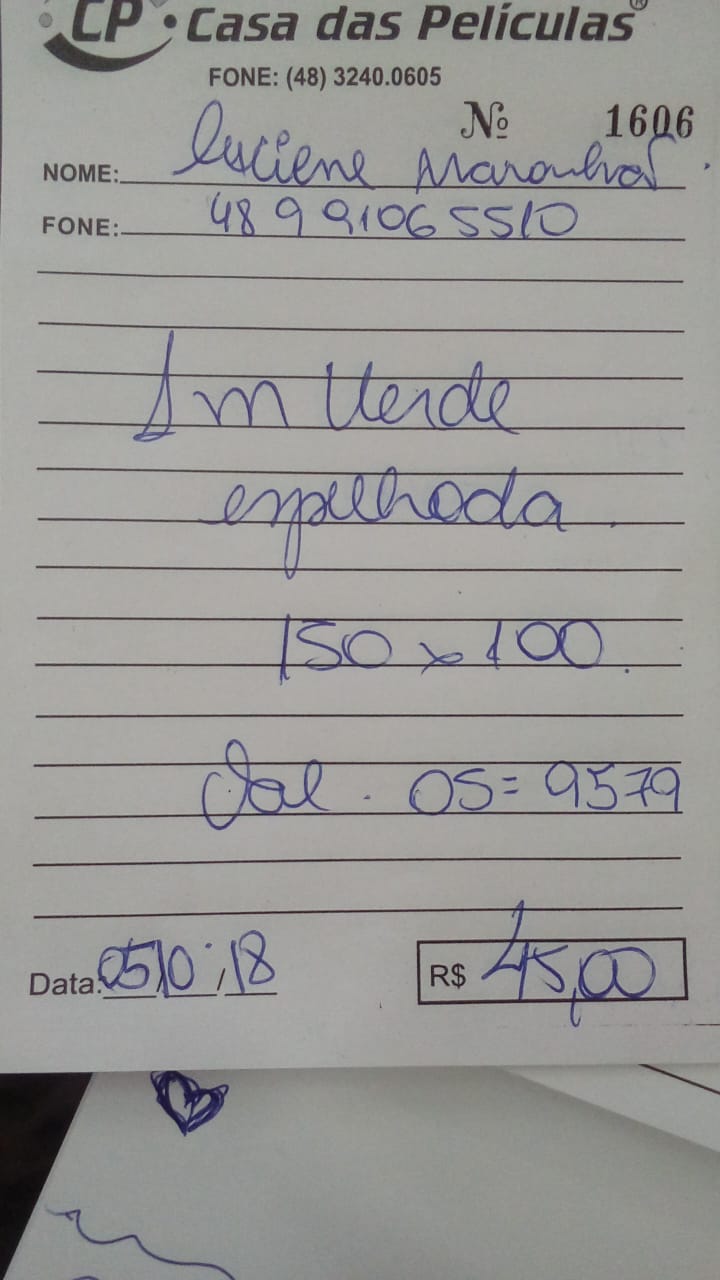 CP • Casa das Películas®
FONE: (48) 3240.0605
Nº 1606
NOME: Luciene Maranhão
FONE: 48 991065510
1m Verde
espelhada.
150 x 100.
OS= 9579
Data: 05/10/18
R$ 45,00